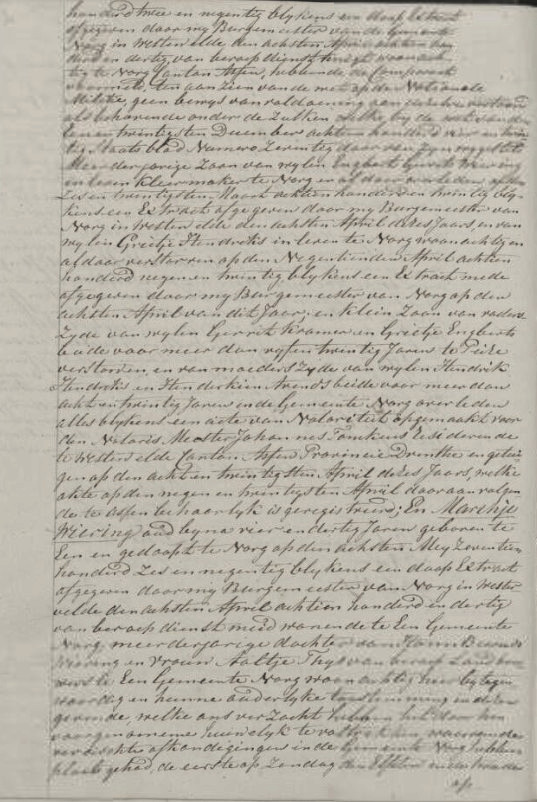 honderd twee en negentig blykens een doop Extract
afgegeven door my Burgemeester van de Gemeente
Norg in Westervelde den achsten April achtien hon
derd en dertig van beroep dienst knegt woonach
tig te Norg Canton Assen, hebbende de Comparant
voormeld, ten aanzien van de wet op den Nationale
Militie, geen bewys van voldoening van dezelve
als behorende onder de Zulken welke by de wet van den
Een en twintigsten December achtien honderd vier en twin
tig Staats blad Numero Zeventig daar van zyn
Meerderjarige Zoon van wylen Engbert Gerrits
in leven Kleermaker te Norg en aldaar overleden op den
Zes en twintigsten Maart achtien honderd en twintig bly
kens een Extract afgegeven door my Burgemeester van
Norg in Westervelde den achsten April dezes Jaars, en van
wylen Grietje Hendriks in leven te Norg woonachtig en
aldaar verstorven op den Negentienden April achtien
honderd negen en twintig blykens een Extract mede
afgegeven door my Burgemeester van Norg op den
achsten April van dit Jaar; en Klein Zoon van vaders
Zyde van wylen Gerrit Kramer en Grietje Engberts
beide voor meer dan vyf en twintig Jaren te Peize
verstorven, en van moeders Zyde van wylen Hendrik
Hendriks en Hendrikien Arends beide voor meer dan
acht en twintig Jaren in de Gemeente Norg overleden
alles blykens een acte van Notoriteit opgemaakt voor
den Notaris Meester Johannes Tonckens residerende
te Westervelde Canton Assen Provincie Drenthe en getui
gen op den acht en twintigsten April dezes Jaars, welke
akte op den negen en twintigsten April daaraanvolgen
de te Assen behoorlyk is geregistreerd; En Marchje
Wiering oud byna vier en dertig Jaren geboren te
Een en gedoopt te Norg op den achsten Mey Zeventien
honderd Zes en negentig blykens een doop Extract
afgegeven door my Burgemeester van Norg in Wester
velde den achsten April achtien honderd en dertig
van beroep dienst meid wonende te Een Gemeente
Norg, meerderjarige dochter van Harm
Wiering en Vrouw Aaltje Thys van beroep Land bou
wers te Een Gemeente Norg woonachtig hier by tegen
woordig en hunne ouderlyke toestemming in dezen
gevende, welke ons verzocht hebben het door hen
voorgenomene Huwelyk te voltrekken, waarvan de
vereischte afkondigingen in de Gemeente Norg hebben
plaats gehad, de eerste op Zondag den Elfden
op